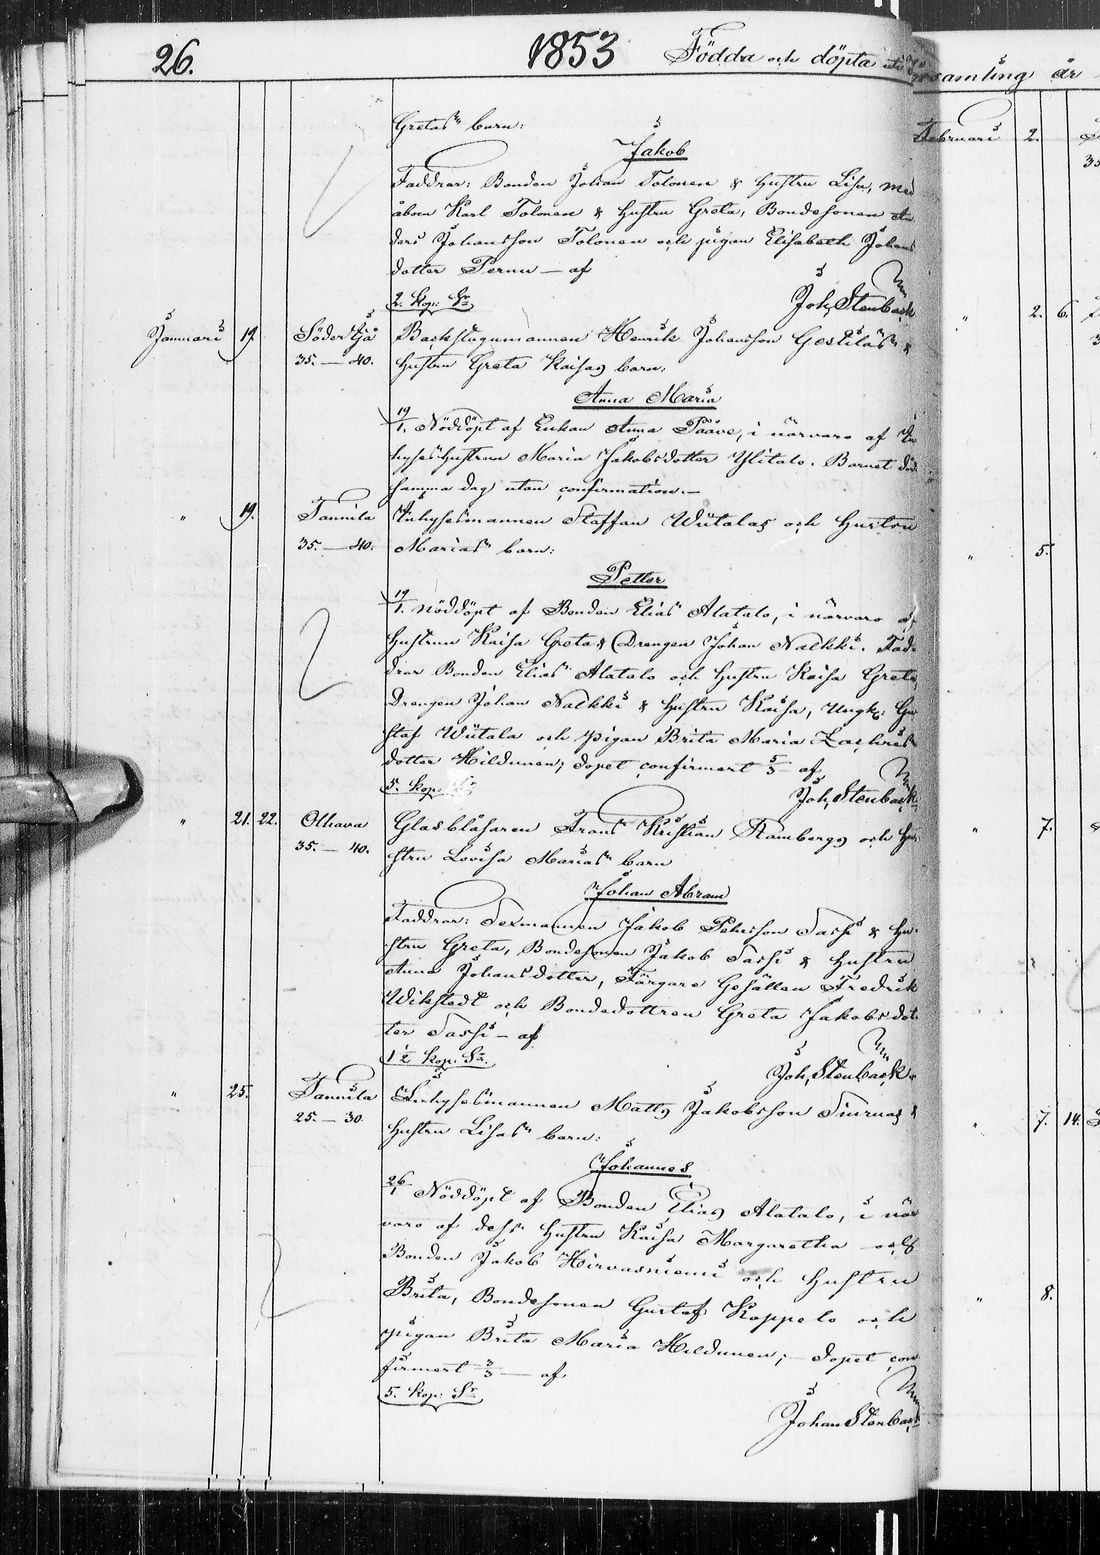 26.
1853 Födda och döpta
Gretas barn:
Jakob
Faddrar: Bonden Johan Tolonen & Hustru Lisa, med
åbon Karl Tolonen & Hustru Greta, Bondesonen An
ders Johansson Tolonen och pigan Elisabeth Johans
dotter Pernu — af
2. kop: Sr
Joh, Stenbäck
Januari 19 Södertjä Backstugumannen Henrik Johansson &
35. — 40. Hustru Greta Kaisas barn:
Anna Maria
19/1. Nöddöpt af Enkan Anna Paave, i närvaro af In
hyses Hustrun Maria Jakobsdotter Ylitalo. Barnet död
samma dag utan confirmation. —
" 19. Tannila Inhysesmannen Staffan Wiitalas och Hustru
35. — 40. Marias barn:
Petter
19/1. Nöddöpt af Bonden Elias Alatalo, i närvaro af
Hustrun Kaisa Greta & Drengen Johan Nalkki. Fad
drar Bonden Elias Alatalo och Hustru Kaisa Greta,
Drengen Johan Nalkki & Hustru Kaisa, Ungk: Gu
staf Wiitala och pigan Brita Maria Zachris
dotter Hildunen; dopet confirmert 5/3 — af
5. kop: Sr
Joh, Stenbäck
" 21. 22. Olhava Glasblåsaren Frans Kristian Rambergs och Hu
35. — 40. stru Lovisa Marias barn
Johan Abram
Faddrar: Sexmannen Jakob Pehrsson Tassi & Hu
stru Greta, Bondesonen Jakob Tassi & Hustru
Anna Johansdotter, Färgare Gesällen Fredrik
Wikstedt och Bondedottren Greta Jakobsdot
ter Tassi — af
12 kop: Sr.
Joh, Stenbäck
" 25. Tannila Inhysesmannen Matts Jakobsson &
25. — 30. Hustru Lisas barn:
Johannes
26/1 Nöddöpt af Bonden Elias Alatalo, i när
varo af dess Hustru Kaisa Margaretha och
Bonden Jakob Hirvasniemi och Hustru
Brita, Bondesonen Gustaf Koppelo och
pigan Brita Maria Hildunen; — dopet con
firmert 3/3 — af
5. kop: Sr.
Johan Stenbäck
samling år
Februari 2.
" 2. 6.
" 5.
" 7.
" 7. 14.
" 8.